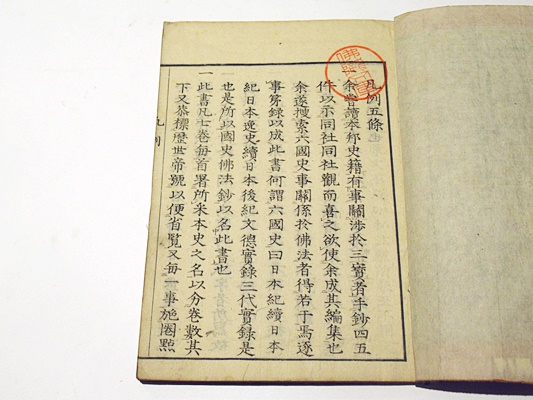 凡例五條
一余嘗讀本邦史籍有事關渉於三寶者手鈔四五
件以示同社同社觀而喜之欲使余成其編集也
余遂捜索六國史事關係於佛法者得若干焉逐
事穿録以成此書何謂六國史曰日本紀續日本
紀日本逸史續日本後紀文德實録三代實録是
也是所以國史佛法鈔以名此書也
一此書凡七卷毎首署所采本史之名以分卷數其
下又恭標歷世帝號以便省覧又毎一事施圏㸃
凡例